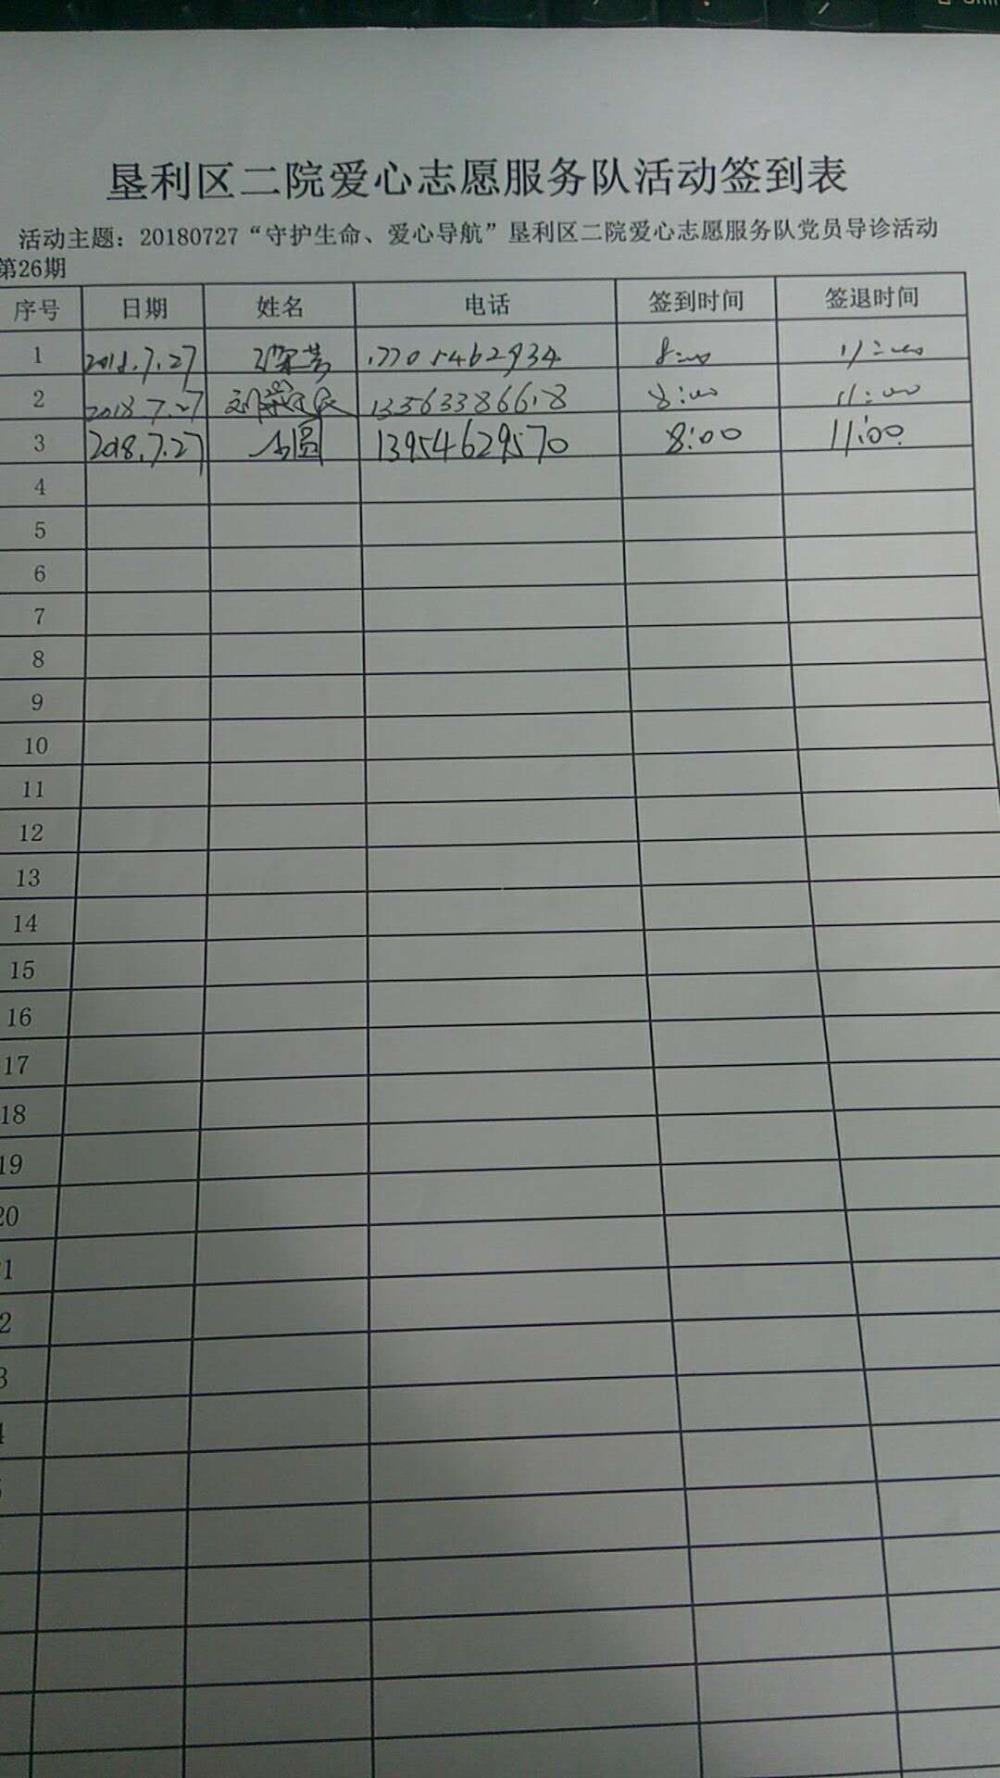 垦利区二院爱心志愿服务队活动签到表
活动主题：20180727“守护生命、爱心导航”垦利区二院爱心志愿服务队党员导诊活动
第26期
序号 日期 姓名 电话 签到时间 签退时间
1 2018.7.27 17705462934 8:00 11:00
2 2018.7.27 13563386618 8:00 11:00
3 2018.7.27 13954629570 8:00 11:00
4
5
6
7
8
9
10
11
12
13
14
15
16
17
18
19
20